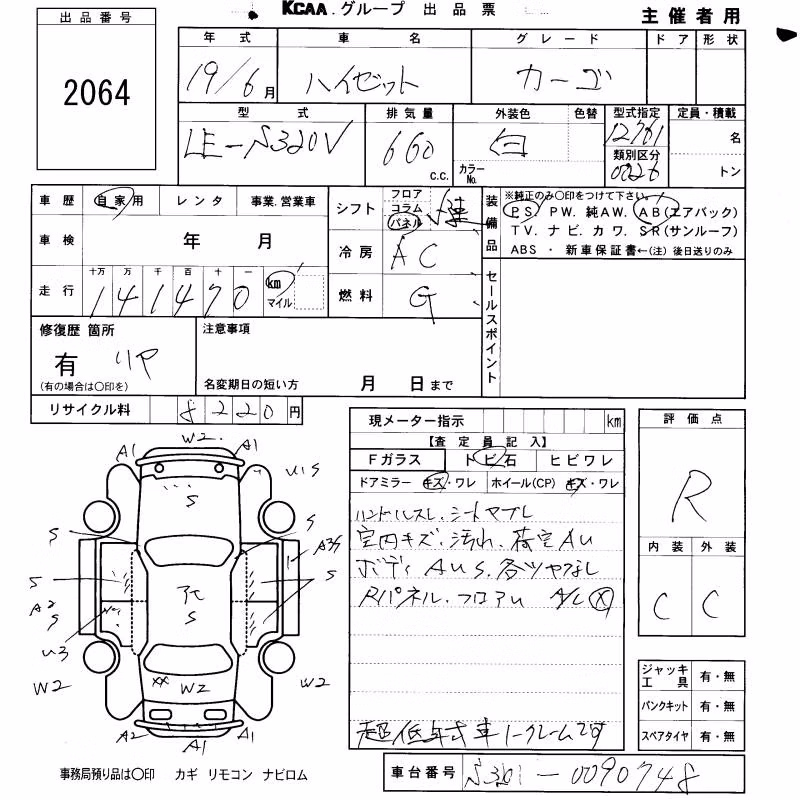 KCAA.グループ 出品票
主催者用
出品番号
2064
年式 車名 グレード ドア 形状
19/6月 ハイゼット カーゴ
型式 排気量 外装色 色替 型式指定 定員・積載
LE-S320V 660 c.c. 白 カラーNo. 12761 名
類別区分
0026 トン
車歴 自家用 レンタ 事業.営業車
シフト フロア コラム パネル
装備品
※純正のみ〇印をつけて下さい。
PS PW. 純AW. AB(エアバック)
TV. ナビ. カワ. SR(サンルーフ)
ABS ・ 新車保証書←(注) 後日送りのみ
車検 年 月
冷房 AC
走行 十万 万 千 百 十 一
141470 km マイル
燃料 G
セールスポイント
修復歴 箇所
有 リア
(有の場合は〇印を)
注意事項
名変期日の短い方 月 日まで
リサイクル料 8220円
現メーター指示 km
【査定員記入】
Fガラス トビ石 ヒビワレ
ドアミラー キズ・ワレ ホイール(CP) キズ・ワレ
ハンドルスレ. シートヤブレ
室内キズ. 汚れ. 荷室AU
ボディ AUS. 各ツヤなし
Rパネル. フロアU A/C X
超低年式車ノークレームです
評価点
R
内装 外装
C C
ジャッキ工具 有・無
パンクキット 有・無
スペアタイヤ 有・無
W2
A1 A1
S U1S
S S
S A3S
S S
A2
S
S
U3
W2 XX W2 W2
A2 A1 A1
事務局預り品は〇印 カギ リモコン ナビロム
車台番号 S320-0090748